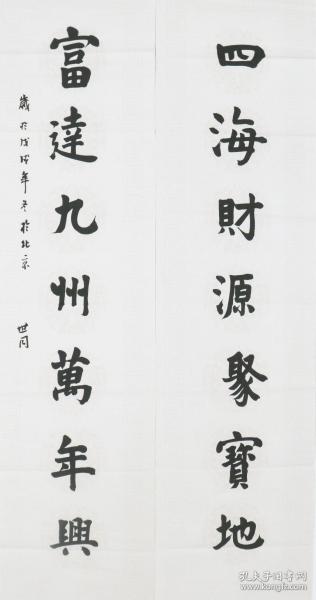 四海財源聚寶地
富達九州萬年興
歲於戊戌年冬於北京
世同
孔夫子旧书网
www.kongfz.com